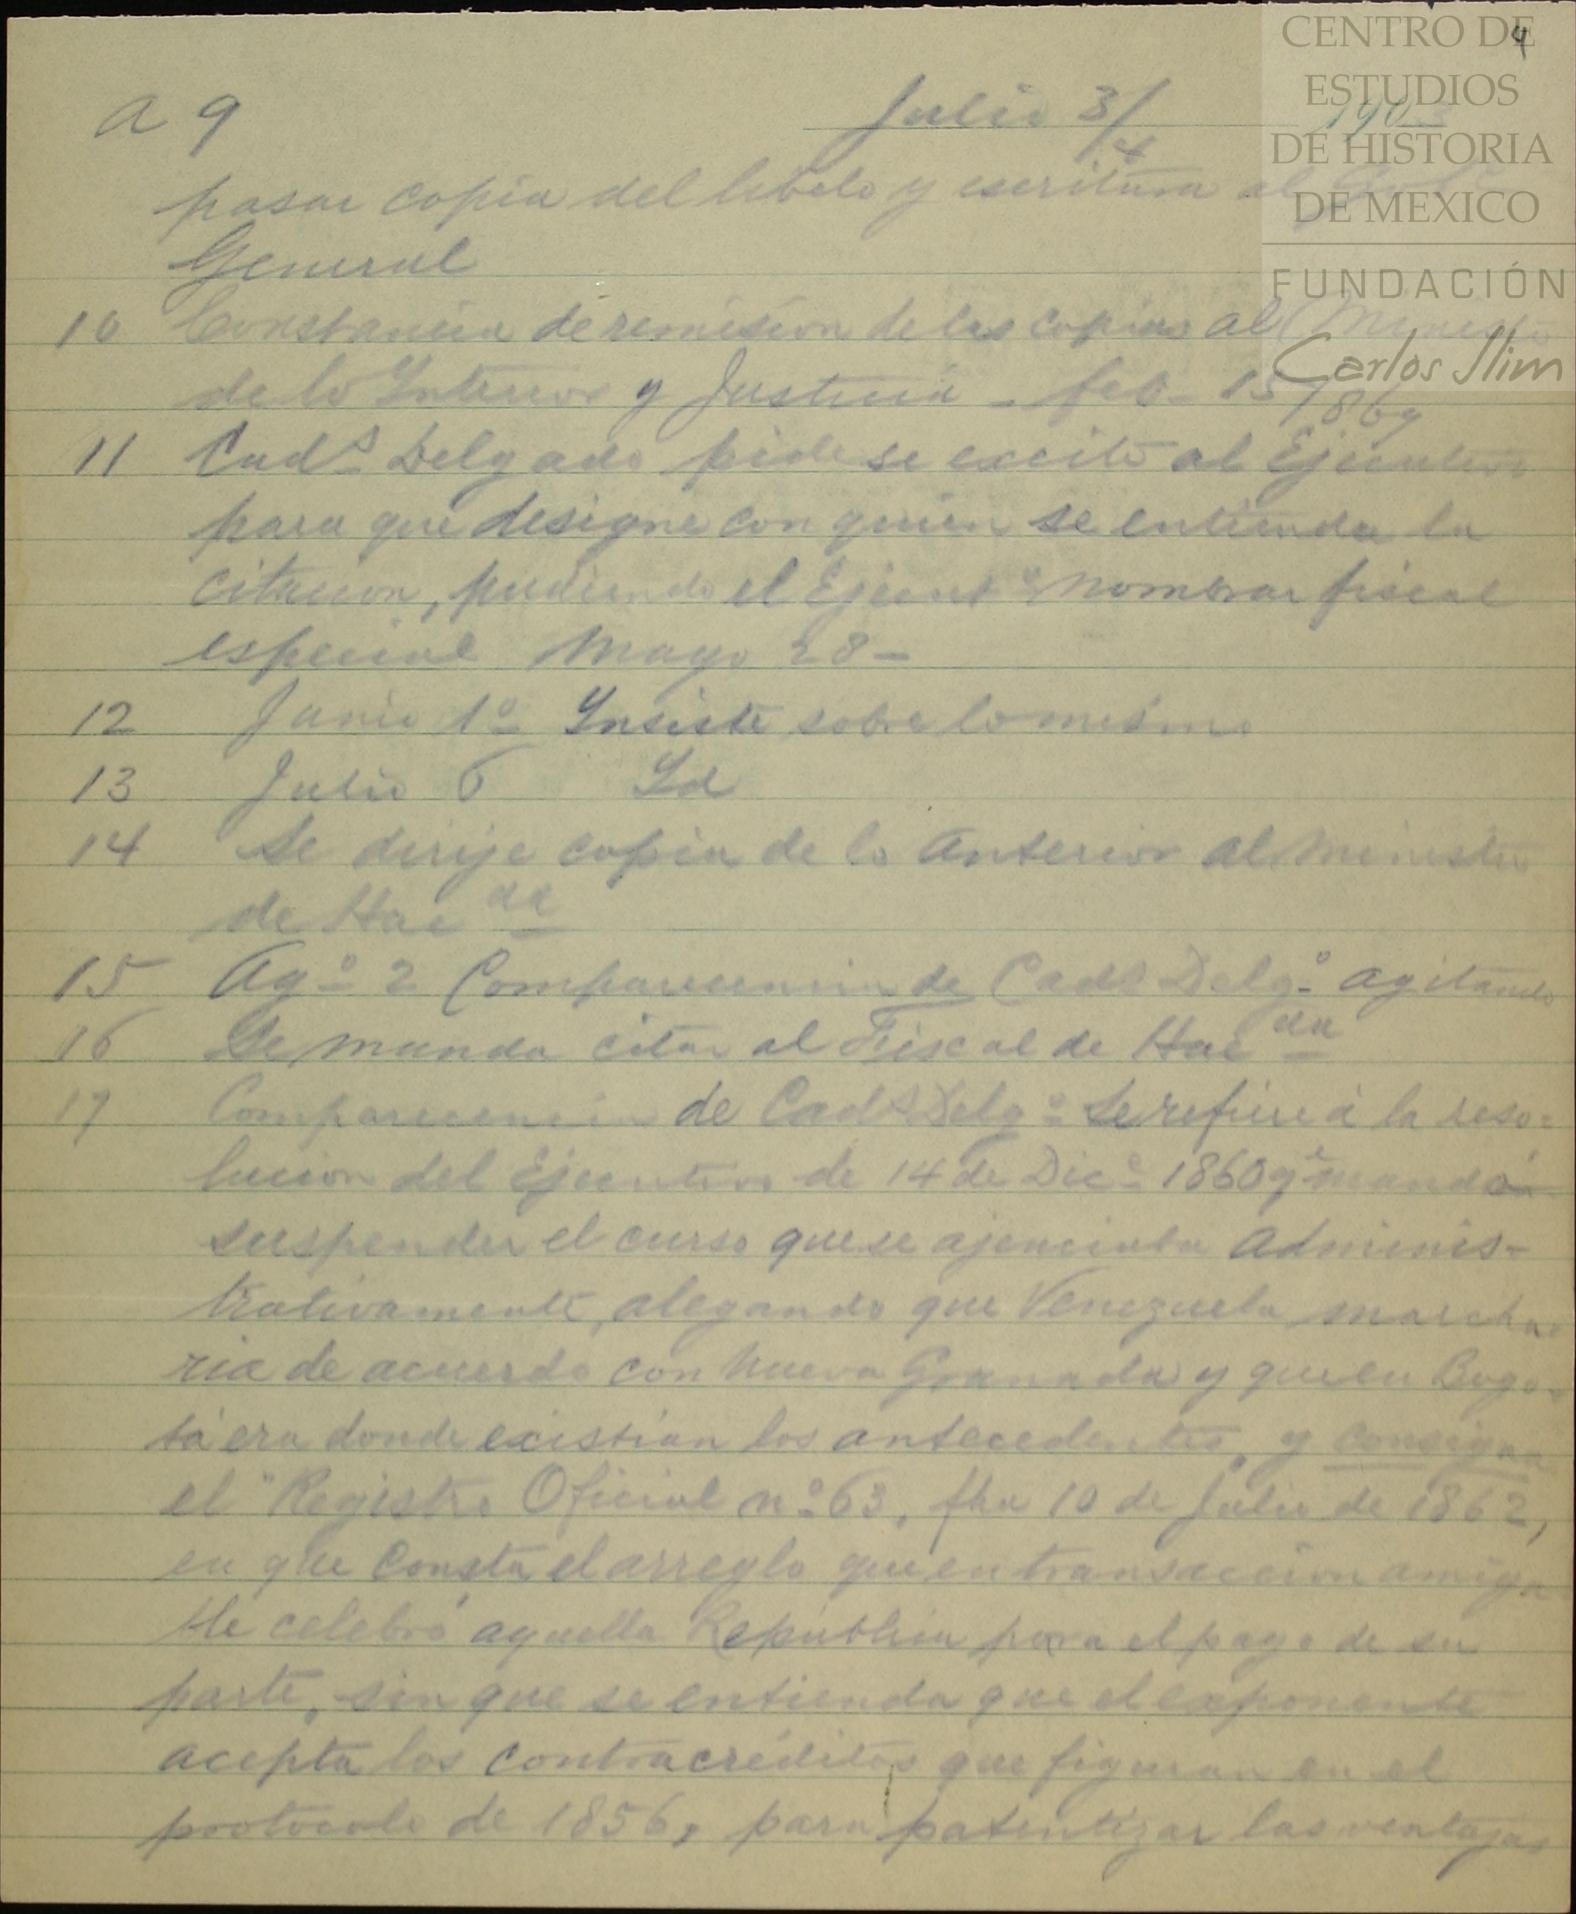 CENTRO DE
ESTUDIOS
DE HISTORIA
DE MEXICO
FUNDACIÓN
Carlos Slim
4
a 9 Julio 3/4 190
pasar copia del libelo y escritura al
General
10 Constancia de remision de las copias al Ministro
de lo Interior y Justicia - feb - 15/1869
11 Cads Delgado pide se excite al Ejecutivo
para que designe con quien se entienda la
citacion, pudiendo el Ejecutº nombrar fiscal
especial Mayo 28 -
12 Junio 1º Insiste sobre lo mismo
13 Julio 6 Id
14 Se dirije copia de lo anterior al Ministro
de Hacda
15 Agº 2 Comparecencia de Cads Delgº agitando
16 Se manda citar al Fiscal de Hacda
17 Comparecencia de Cads Delgº Se refiere á la reso=
lucion del Ejecutivo de 14 de Dicº 1860 qe mandó
suspender el curso que se ajenciaba adminis=
trativamente, alegando que Venezuela marcha=
ria de acuerdo con Nueva Granada y que en Bogo=
tá era donde existian los antecedentes, y consigna
el "Registro Oficial nº 63, fha 10 de Julio de 1862,
en que consta el arreglo que en transaccion amiga
ble celebró aquella República para el pago de su
parte, sin que se entienda que el exponente
acepta los contracréditos que figuran en el
protocolo de 1856, para patentizar las ventajas